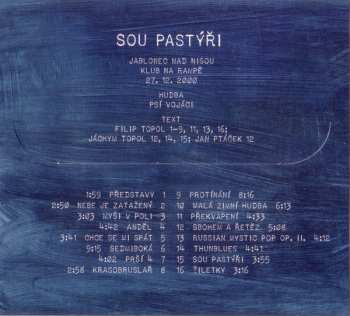 SOU PASTÝŘI
JABLONEC NAD NISOU
KLUB NA RAMPĚ
27. 12. 2000
HUDBA
PSÍ VOJÁCI
TEXT
FILIP TOPOL 1-9, 11, 13, 16;
JÁCHYM TOPOL 12, 14, 15; JAN PTÁČEK 12
1:59 PŘEDSTAVY 1
2:50 NEBE JE ZATAŽENÝ 2
3:03 MYŠI V POLI 3
4:42 ANDĚL 4
3:41 CHCE SE MI SPÁT 5
9:15 SEDMIBOKÁ 6
4:02 PRŠÍ 4 7
2:58 KRASOBRUSLAŘ 8
9 PROTÍNÁNÍ 8:16
10 MALÁ ZIMNÍ HUDBA 6:13
11 PŘEKVAPENÍ 4:33
12 SBOHEM A ŘETĚZ 5:08
13 RUSSIAN MYSTIC POP OP. II. 4:12
14 THUNBLUES 4:47
15 SOU PASTÝŘI 3:55
16 ŽILETKY 3:16